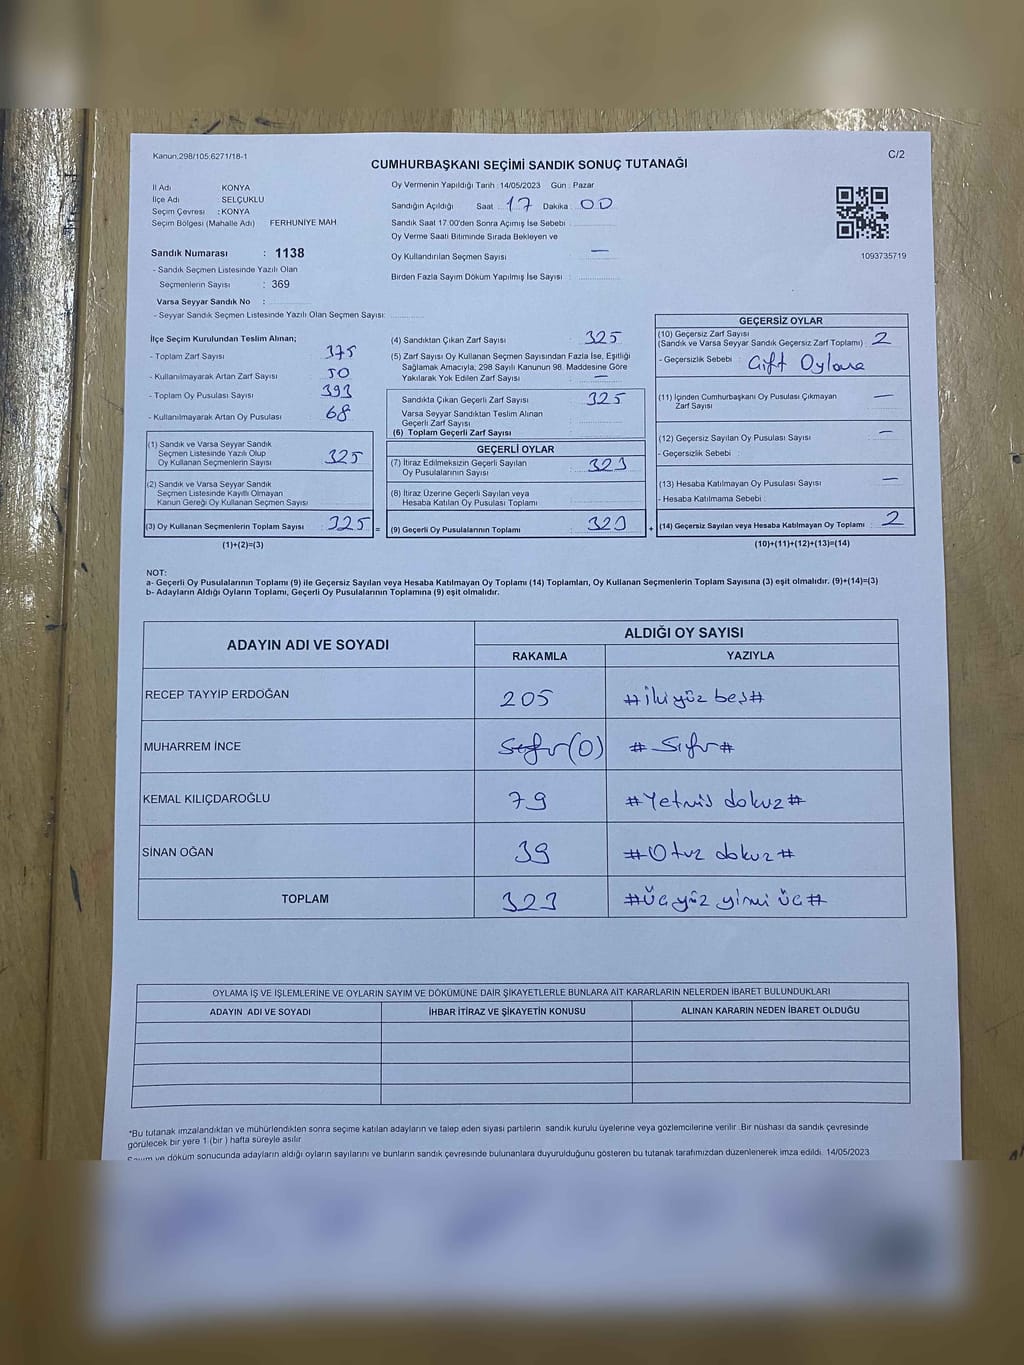 Kanun.298/105.6271/18-1
C/2
CUMHURBAŞKANI SEÇİMİ SANDIK SONUÇ TUTANAĞI
İl Adı KONYA
İlçe Adı SELÇUKLU
Seçim Çevresi : KONYA
Seçim Bölgesi (Mahalle Adı) FERHUNİYE MAH
Sandık Numarası : 1138
- Sandık Seçmen Listesinde Yazılı Olan
Seçmenlerin Sayısı : 369
Varsa Seyyar Sandık No :
- Seyyar Sandık Seçmen Listesinde Yazılı Olan Seçmen Sayısı:
Oy Vermenin Yapıldığı Tarih : 14/05/2023 Gün : Pazar
Sandığın Açıldığı Saat : 17 Dakika : 00
Sandık Saat 17:00'den Sonra Açımış İse Sebebi :
Oy Verme Saati Bitiminde Sırada Bekleyen ve
Oy Kullandırılan Seçmen Sayısı : —
Birden Fazla Sayım Döküm Yapılmış İse Sayısı :
1093735719
İlçe Seçim Kurulundan Teslim Alınan;
- Toplam Zarf Sayısı : 375
- Kullanılmayarak Artan Zarf Sayısı : 50
- Toplam Oy Pusulası Sayısı : 393
- Kullanılmayarak Artan Oy Pusulası : 68
(1) Sandık ve Varsa Seyyar Sandık
Seçmen Listesinde Yazılı Olup
Oy Kullanan Seçmenlerin Sayısı : 325
(2) Sandık ve Varsa Seyyar Sandık
Seçmen Listesinde Kayıtlı Olmayan
Kanun Gereği Oy Kullanan Seçmen Sayısı :
(3) Oy Kullanan Seçmenlerin Toplam Sayısı : 325 =
(1)+(2)=(3)
(4) Sandıktan Çıkan Zarf Sayısı : 325
(5) Zarf Sayısı Oy Kullanan Seçmen Sayısından Fazla İse, Eşitliği
Sağlamak Amacıyla, 298 Sayılı Kanunun 98. Maddesine Göre
Yakılarak Yok Edilen Zarf Sayısı : —
Sandıkta Çıkan Geçerli Zarf Sayısı : 325
Varsa Seyyar Sandıktan Teslim Alınan
Geçerli Zarf Sayısı :
(6) Toplam Geçerli Zarf Sayısı :
GEÇERLİ OYLAR
(7) İtiraz Edilmeksizin Geçerli Sayılan
Oy Pusulalarının Sayısı : 323
(8) İtiraz Üzerine Geçerli Sayılan veya
Hesaba Katılan Oy Pusulası Toplamı :
(9) Geçerli Oy Pusulalarının Toplamı : 323 +
GEÇERSİZ OYLAR
(10) Geçersiz Zarf Sayısı
(Sandık ve Varsa Seyyar Sandık Geçersiz Zarf Toplamı) : 2
- Geçersizlik Sebebi : Çift Oylama
(11) İçinden Cumhurbaşkanı Oy Pusulası Çıkmayan
Zarf Sayısı : —
(12) Geçersiz Sayılan Oy Pusulası Sayısı : —
- Geçersizlik Sebebi :
(13) Hesaba Katılmayan Oy Pusulası Sayısı : —
- Hesaba Katılmama Sebebi :
(14) Geçersiz Sayılan veya Hesaba Katılmayan Oy Toplamı : 2
(10)+(11)+(12)+(13)=(14)
NOT:
a- Geçerli Oy Pusulalarının Toplamı (9) ile Geçersiz Sayılan veya Hesaba Katılmayan Oy Toplamı (14) Toplamları, Oy Kullanan Seçmenlerin Toplam Sayısına (3) eşit olmalıdır. (9)+(14)=(3)
b- Adayların Aldığı Oyların Toplamı, Geçerli Oy Pusulalarının Toplamına (9) eşit olmalıdır.
ADAYIN ADI VE SOYADI ALDIĞI OY SAYISI
RAKAMLA YAZIYLA
RECEP TAYYİP ERDOĞAN 205 #ikiyüz beş#
MUHARREM İNCE Sıfır(0) #Sıfır#
KEMAL KILIÇDAROĞLU 79 #Yetmiş dokuz#
SİNAN OĞAN 39 #Otuz dokuz#
TOPLAM 323 #üçyüz yirmi üç#
OYLAMA İŞ VE İŞLEMLERİNE VE OYLARIN SAYIM VE DÖKÜMÜNE DAİR ŞİKAYETLERLE BUNLARA AİT KARARLARIN NELERDEN İBARET BULUNDUKLARI
ADAYIN ADI VE SOYADI İHBAR İTİRAZ VE ŞİKAYETİN KONUSU ALINAN KARARIN NEDEN İBARET OLDUĞU
*Bu tutanak imzalandıktan ve mühürlendikten sonra seçime katılan adayların ve talep eden siyasi partilerin sandık kurulu üyelerine veya gözlemcilerine verilir. Bir nüshası da sandık çevresinde
görülecek bir yere 1 (bir) hafta süreyle asılır
Sayım ve döküm sonucunda adayların aldığı oyların sayılarını ve bunların sandık çevresinde bulunanlara duyurulduğunu gösteren bu tutanak tarafımızdan düzenlenerek imza edildi. 14/05/2023